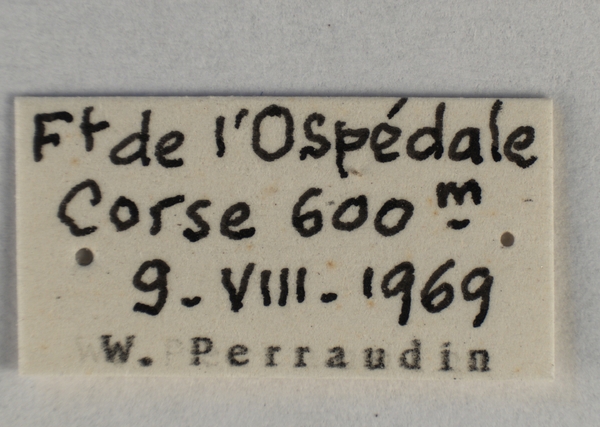 Ft de l'Ospédale
Corse 600 m
9-VIII-1969
W. Perraudin